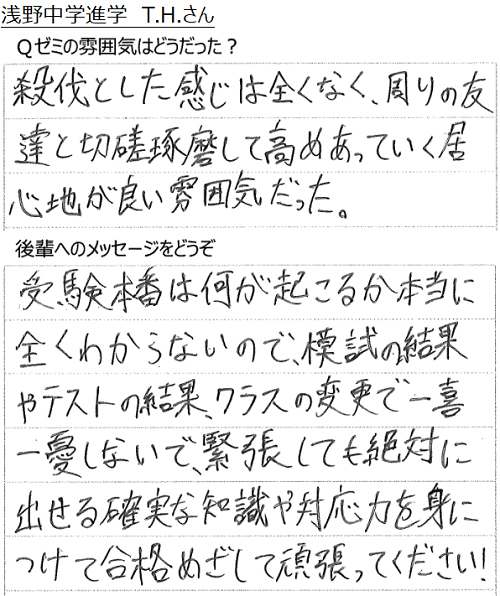 浅野中学進学　T.H.さん
Qゼミの雰囲気はどうだった？
殺伐とした感じは全くなく、周りの友
達と切磋琢磨して高めあっていく居
心地が良い雰囲気だった。
後輩へのメッセージをどうぞ
受験本番は何が起こるか本当に
全くわからないので、模試の結果
やテストの結果、クラスの変更で一喜
一憂しないで、緊張しても絶対に
出せる確実な知識や対応力を身に
つけて合格めざして頑張ってください!